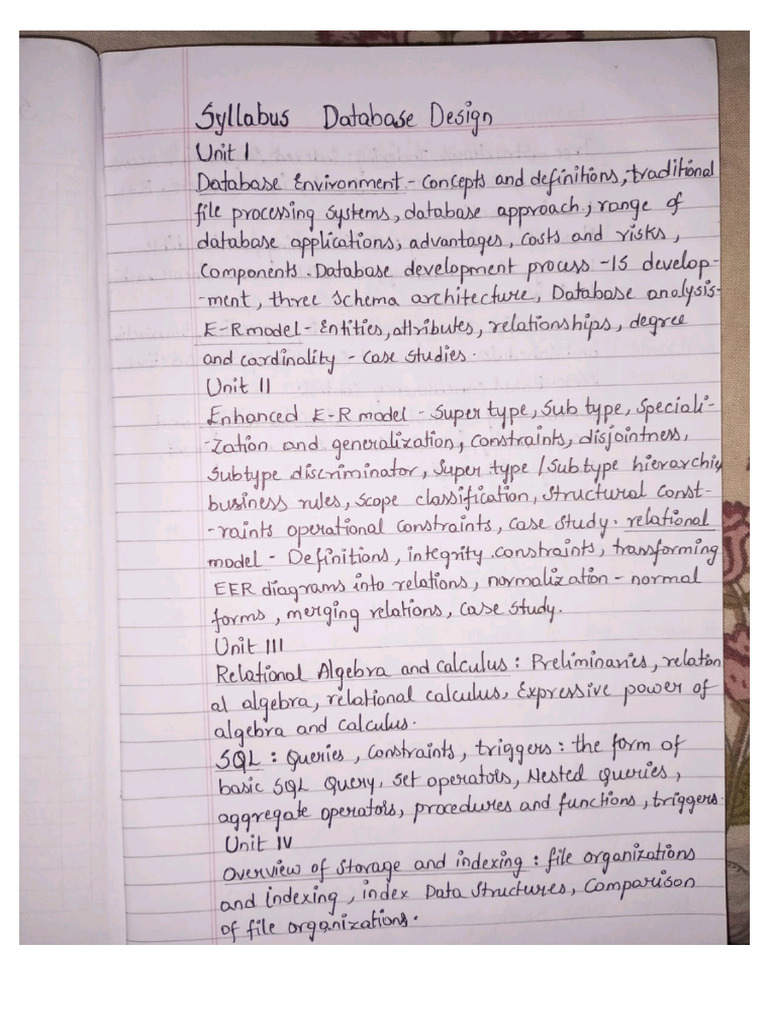 Syllabus Database Design
Unit I
Database Environment - Concepts and definitions, traditional
file processing systems, database approach, range of
database applications, advantages, costs and risks,
Components. Database development process - IS develop-
-ment, three schema architecture, Database analysis-
E-R model - Entities, attributes, relationships, degree
and cardinality - case studies.
Unit II
Enhanced E-R model - Super type, Sub type, Speciali-
-zation and generalization, Constraints, disjointness,
Subtype discriminator, Super type / Subtype hierarchiy
business rules, Scope classification, Structural Const-
-raints operational constraints, case study. relational
model - Definitions, integrity constraints, transforming
EER diagrams into relations, normalization - normal
forms, merging relations, case study.
Unit III
Relational Algebra and calculus : Preliminaries, relation
al algebra, relational calculus, Expressive power of
algebra and calculus.
SQL : Queries, Constraints, triggers : the form of
basic SQL Query, Set operators, Nested Queries,
aggregate operators, procedures and functions, triggers.
Unit IV
Overview of Storage and indexing : file organizations
and indexing, index Data Structures, Comparison
of file organizations.